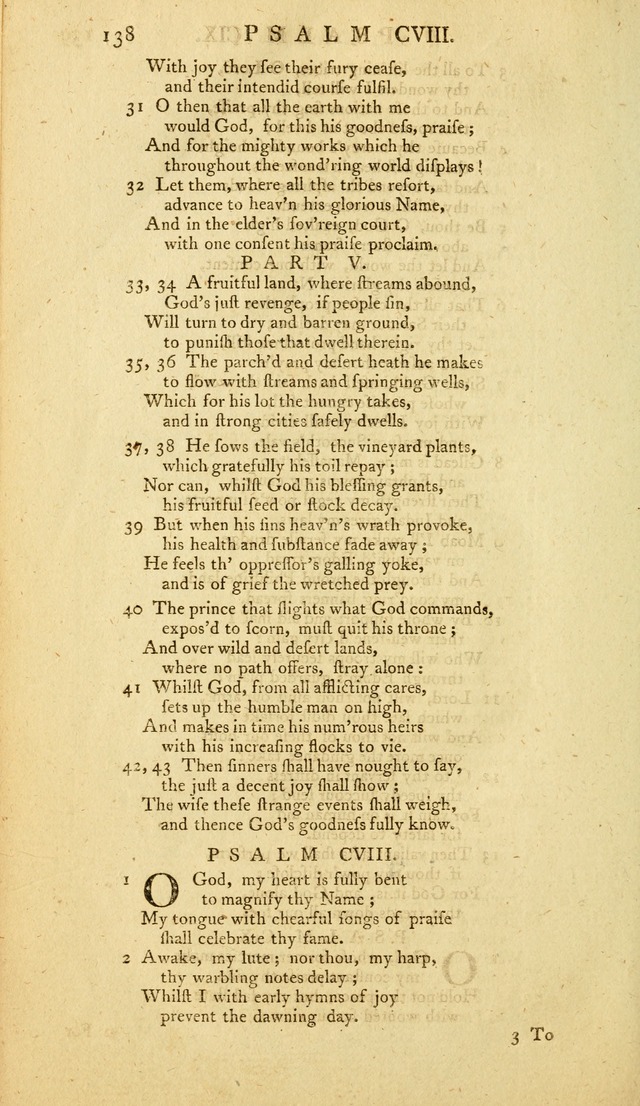 138 PSALM CVIII.
With joy they ſee their fury ceaſe,
and their intendid courſe fulfil.
31 O then that all the earth with me
would God, for this his goodneſs, praiſe ;
And for the mighty works which he
throughout the wond'ring world diſplays !
32 Let them, where all the tribes reſort,
advance to heav'n his glorious Name,
And in the elder's ſov'reign court,
with one conſent his praiſe proclaim.
PART V.
33, 34 A fruitful land, where ſtreams abound,
God's juſt revenge, if people ſin,
Will turn to dry and barren ground,
to puniſh thoſe that dwell therein.
35, 36 The parch'd and deſert heath he makes
to flow with ſtreams and ſpringing wells,
Which for his lot the hungry takes,
and in ſtrong cities ſafely dwells.
37, 38 He ſows the field, the vineyard plants,
which gratefully his toil repay ;
Nor can, whilſt God his bleſſing grants,
his fruitful ſeed or ſtock decay.
39 But when his ſins heav'n's wrath provoke,
his health and ſubſtance fade away ;
He feels th' oppreſſor's galling yoke,
and is of grief the wretched prey.
40 The prince that ſlights what God commands,
expos'd to ſcorn, muſt quit his throne ;
And over wild and deſert lands,
where no path offers, ſtray alone :
41 Whilſt God, from all afflicting cares,
ſets up the humble man on high,
And makes in time his num'rous heirs
with his increaſing flocks to vie.
42, 43 Then ſinners ſhall have nought to ſay,
the juſt a decent joy ſhall ſhow ;
The wiſe theſe ſtrange events ſhall weigh,
and thence God's goodneſs fully know.
PSALM CVIII.
1 O God, my heart is fully bent
to magnify thy Name ;
My tongue with chearful ſongs of praiſe
ſhall celebrate thy fame.
2 Awake, my lute ; nor thou, my harp,
thy warbling notes delay ;
Whilſt I with early hymns of joy
prevent the dawning day.
3 To